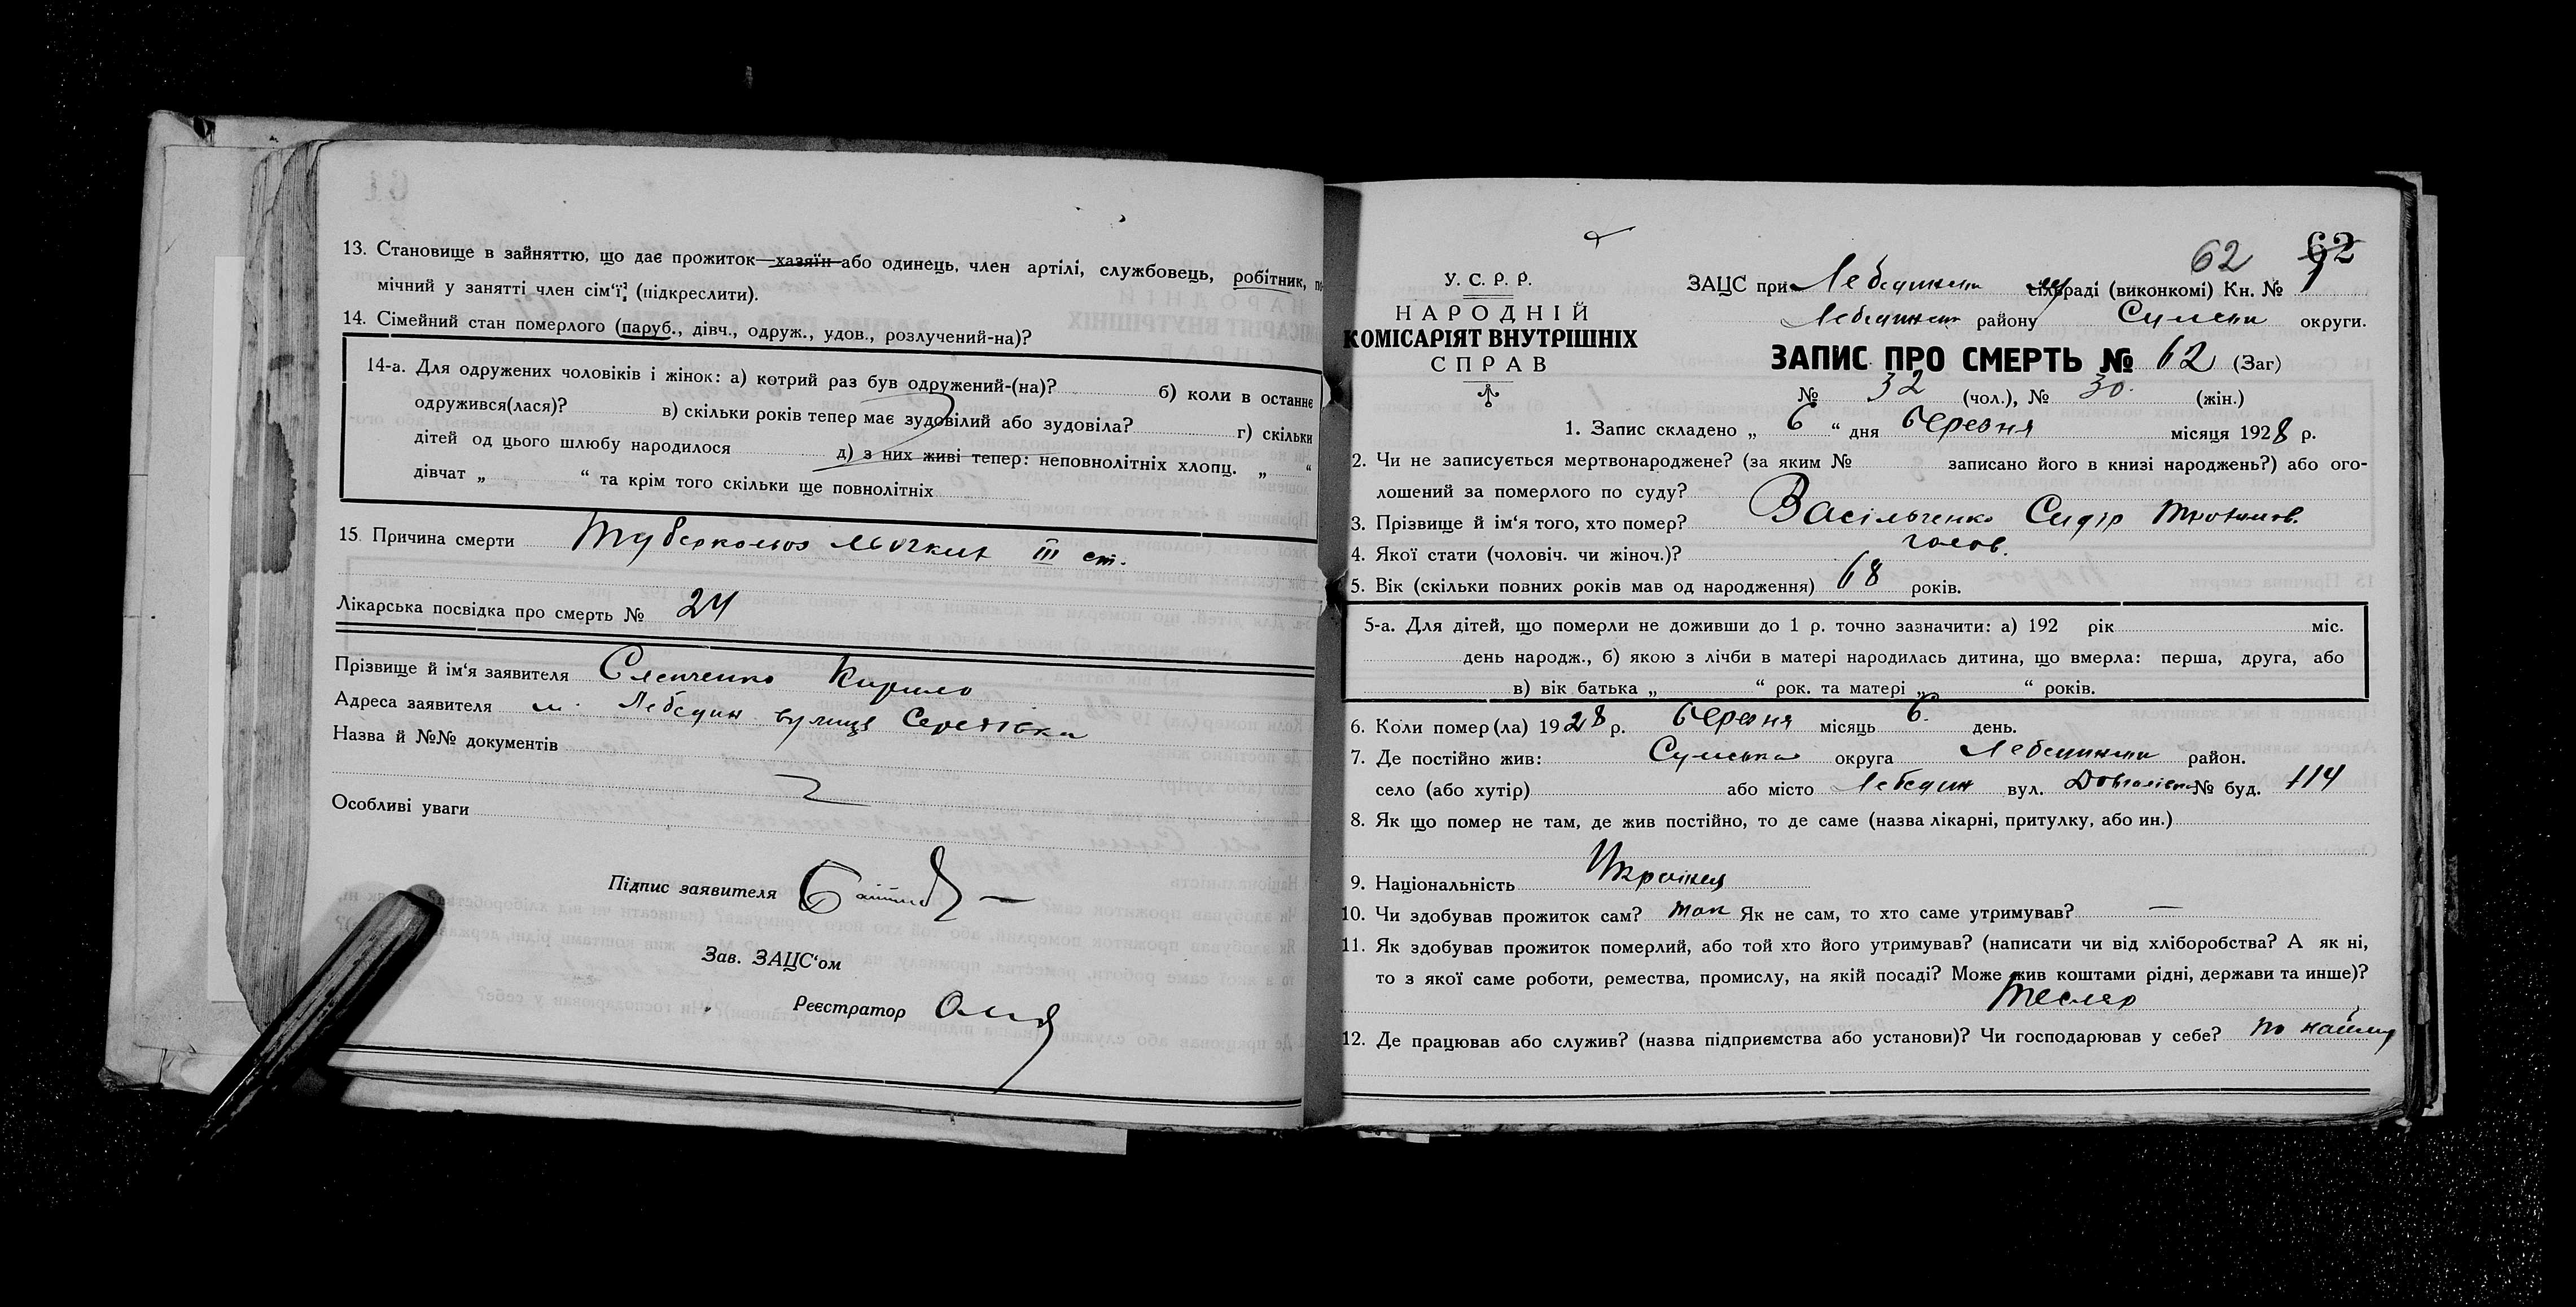 13. Становище в зайняттю, що дає прожиток—хазяїн або одинець, член артілі, службовець, робітник, по
мічний у занятті член сім'ї; (підкреслити).
14. Сімейний стан померлого (паруб., дівч., одруж., удов., розлучений-на)?
14-а. Для одружених чоловіків і жінок: а) котрий раз був одружений-(на)? б) коли в останнє
одружився(лася)? в) скільки років тепер має зудовілий або зудовіла? г) скільки
дітей од цього шлюбу народилося д) з них живі тепер: неповнолітніх хлопц. „ “
дівчат „ “ та крім того скільки ще повнолітніх
15. Причина смерти Туберкольоз льогких III ст.
Лікарська посвідка про смерть № 24
Прізвище й ім'я заявителя Кирило
Адреса заявителя м. Лебедин вулиця
Назва й №№ документів
Особливі уваги
Підпис заявителя
Зав. ЗАЦС'ом
Реєстратор
62 62
У. С. Р. Р.
НАРОДНІЙ
КОМІСАРІЯТ ВНУТРІШНІХ
СПРАВ
ЗАЦС при Лебединськ сільраді (виконкомі) Кн. № 1
Лебединськ району Сумськ округи.
ЗАПИС ПРО СМЕРТЬ № 62 (Заг)
№ 32 (чол.), № 30. (жін.)
1. Запис складено „ 6 “ дня березня місяця 1928 р.
2. Чи не записується мертвонароджене? (за яким № записано його в книзі народжень?) або ого-
лошений за померлого по суду?
3. Прізвище й ім'я того, хто помер? Васільченко Сидір Трохимов.
4. Якої стати (чоловіч. чи жіноч.)? чолов.
5. Вік (скільки повних років мав од народження) 68 років.
5-а. Для дітей, що померли не доживши до 1 р. точно зазначити: а) 192 рік міс.
день народж., б) якою з лічби в матері народилась дитина, що вмерла: перша, друга, або
в) вік батька „ “ рок. та матері „ “ років.
6. Коли помер(ла) 1928 р. березня місяць 6. день.
7. Де постійно жив: Сумська округа Лебединськ район.
село (або хутір) або місто Лебедин вул. Довгалівка № буд. 114
8. Як що помер не там, де жив постійно, то де саме (назва лікарні, притулку, або ин.)
9. Національність Україн
10. Чи здобував прожиток сам? так Як не сам, то хто саме утримував? —
11. Як здобував прожиток померлий, або той хто його утримував? (написати чи від хліборобства? А як ні,
то з якої саме роботи, ремества, промислу, на якій посаді? Може жив коштами рідні, держави та инше)?
тесляр
12. Де працював або служив? (назва підприємства або установи)? Чи господарював у себе? по найму